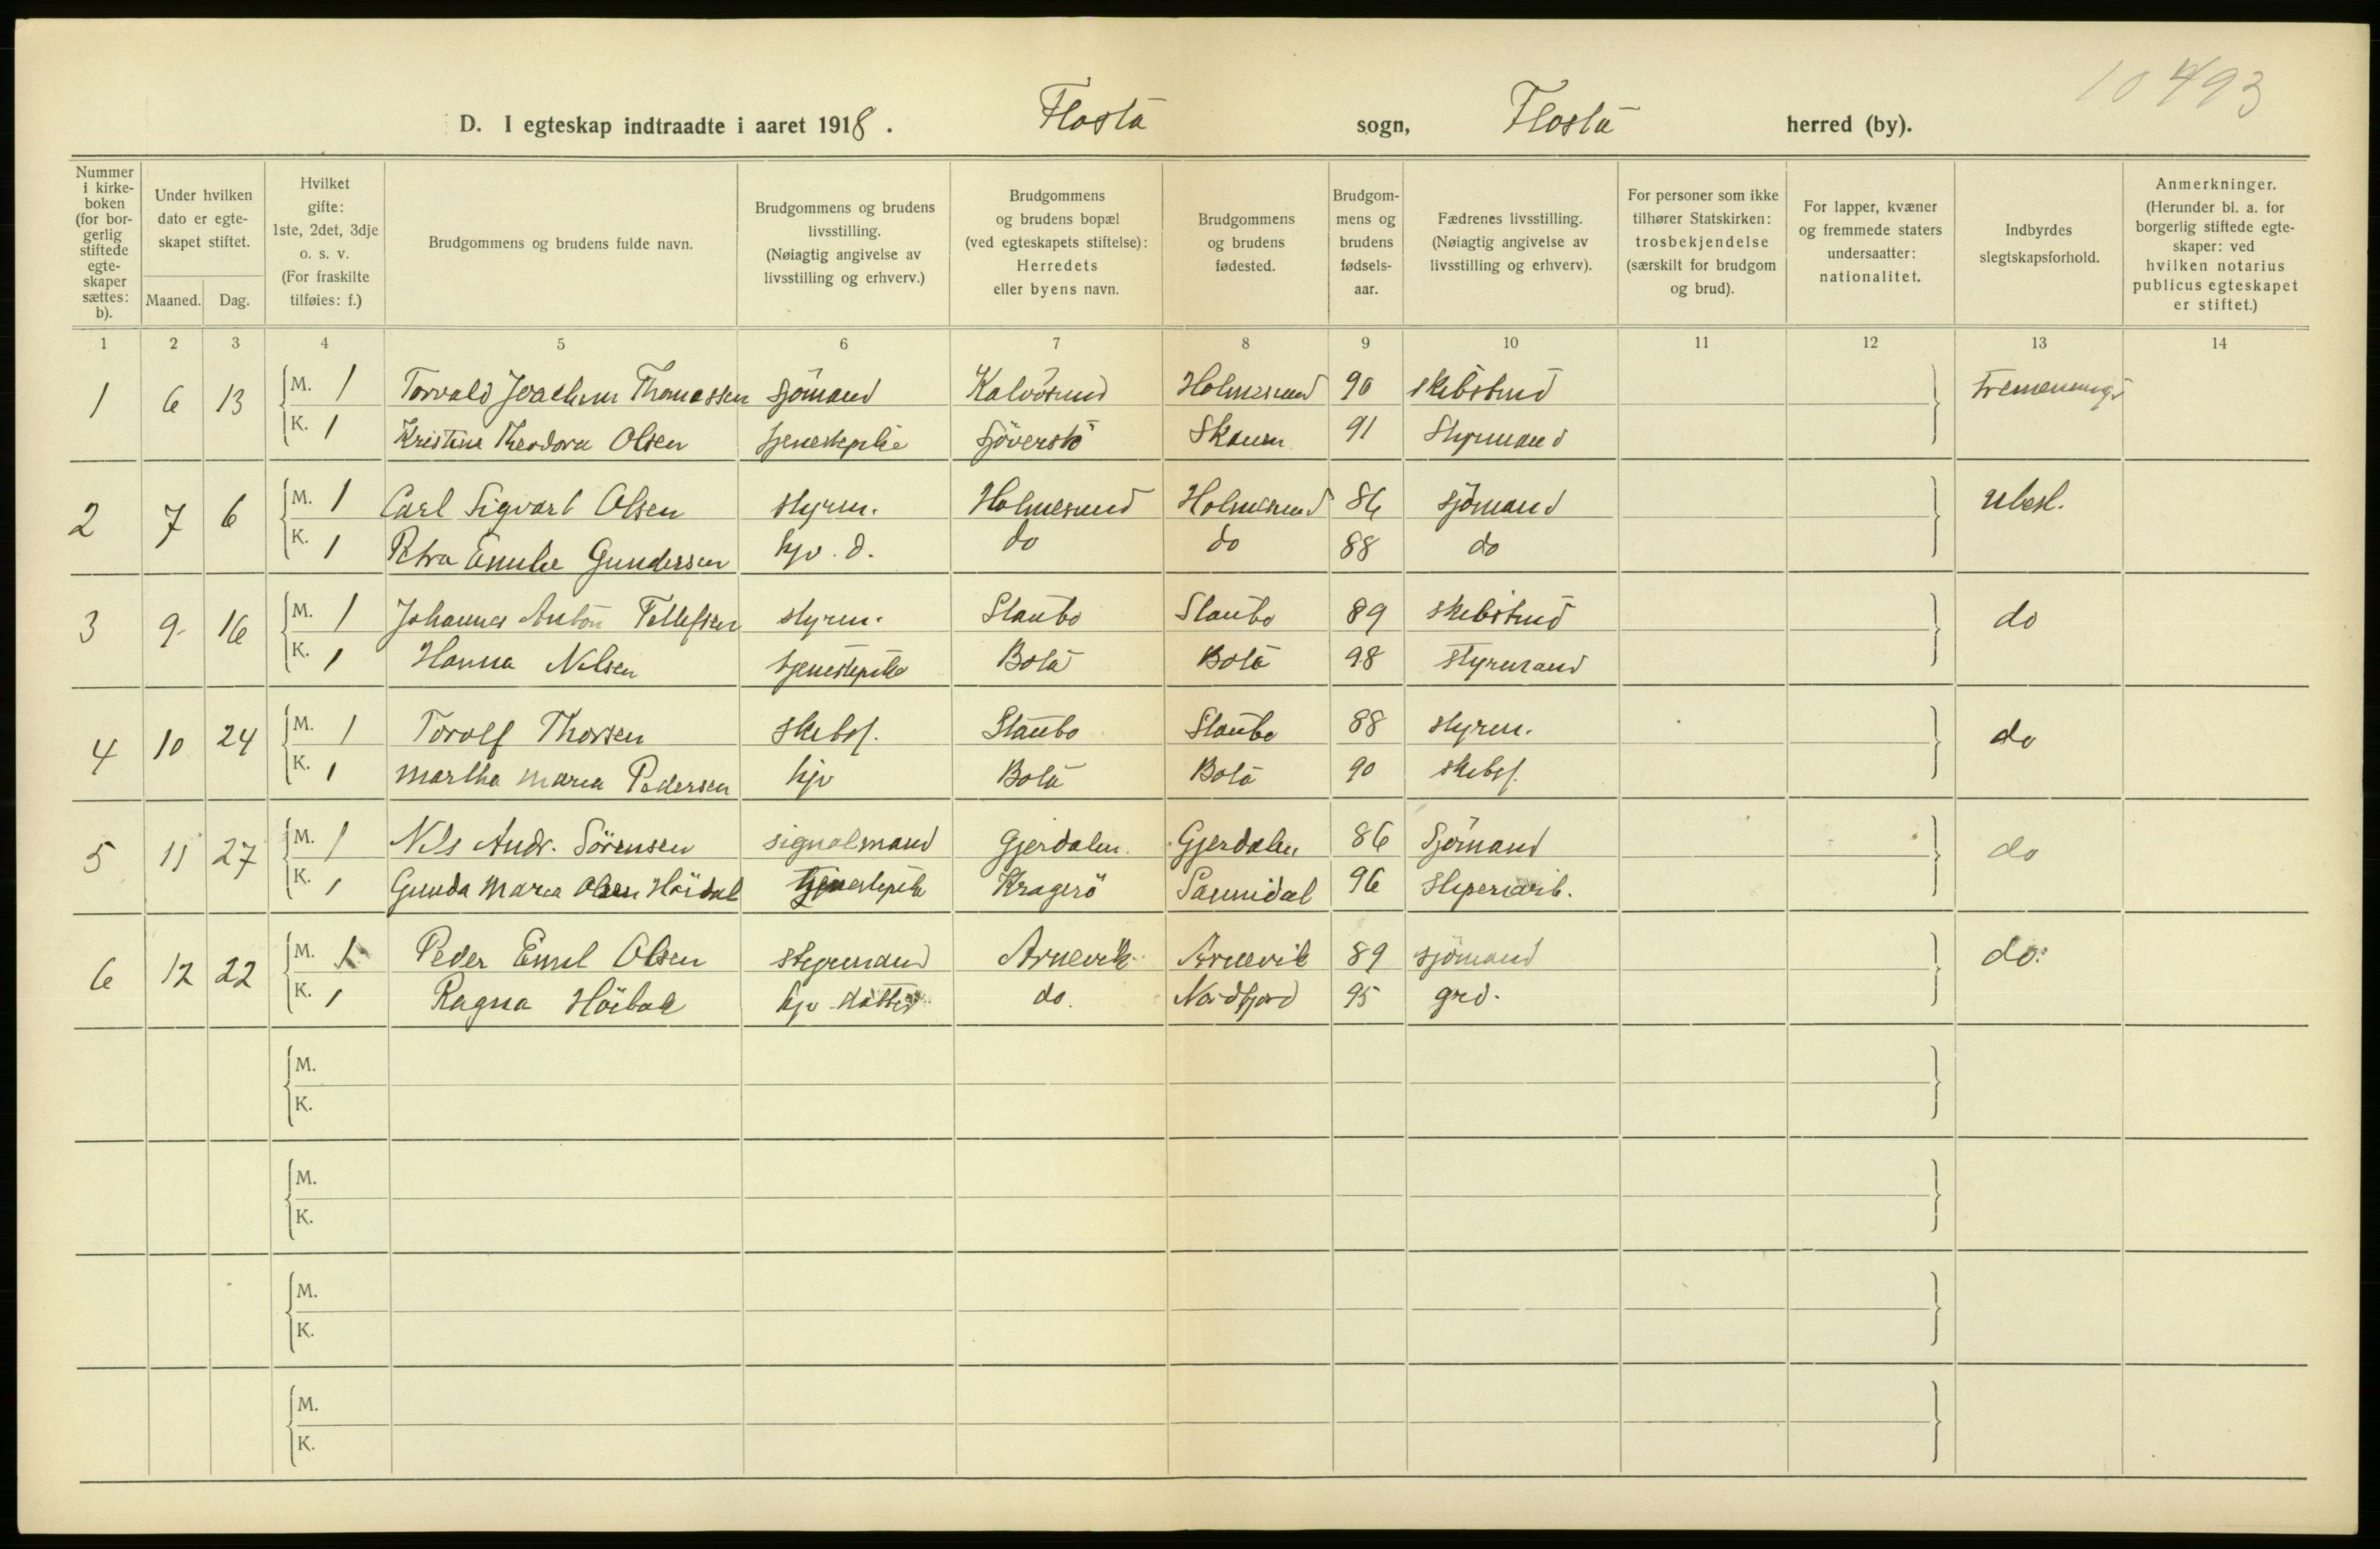 10493
D. I egteskap indtraadte i aaret 1918. Flosta sogn, Flosta herred (by).
Nummer i kirke-boken (for bor-gerlig stiftede egte-skaper sættes: b).
Under hvilken dato er egte-skapet stiftet.
Maaned. Dag.
Hvilket gifte: 1ste, 2det, 3dje o. s. v. (For fraskilte tilføies: f.)
Brudgommens og brudens fulde navn.
Brudgommens og brudens livsstilling. (Nøiagtig angivelse av livsstilling og erhverv.)
Brudgommens og brudens bopæl (ved egteskapets stiftelse): Herredets eller byens navn.
Brudgommens og brudens fødested.
Brudgom-mens og brudens fødsels-aar.
Fædrenes livsstilling. (Nøiagtig angivelse av livsstilling og erhverv).
For personer som ikke tilhører Statskirken: trosbekjendelse (særskilt for brudgom og brud).
For lapper, kvæner og fremmede staters undersaatter: nationalitet.
Indbyrdes slegtskapsforhold.
Anmerkninger. (Herunder bl. a. for borgerlig stiftede egte-skaper: ved hvilken notarius publicus egteskapet er stiftet.)
1 2 3 4 5 6 7 8 9 10 11 12 13 14
1 6 13 M. 1 Torvald Joachim Thomassen sjömand Kalvösund Holmesund 90 skibstmd Tremenninger
K. 1 Kristine Theodora Olsen tjenestepike Sjöverstö 91 Styrmand
2 7 6 M. 1 Carl Sigvart Olsen styrm. Holmesund Holmesund 86 sjömand ubesl.
K. 1 Petra Emilie Gundersen hjv. d. do do 88 do
3 9 16 M. 1 Johannes Anton Tellefsen styrm. Staubo Staubo 89 skibstmd do
K. 1 Hanna Nilsen tjenestepike Bota Bota 98 styrmand
4 10 24 M. 1 Torolf Thorsen skibsf. Staubo Staubo 88 styrm. do
K. 1 Martha Maria Pedersen hjv Bota Bota 90 skibsf.
5 11 27 M. 1 Nils Andr. Sörensen signalmand Gjerdalen Gjerdalen 86 Sjömand do
K. 1 Gunda Maria Olsen Höidal tjenestepike Kragerö Sannidal 96 Sliperiarb.
6 12 22 M. 1 Peder Emil Olsen styrmand Arnevik Arnevik 89 sjömand do.
K. 1 Ragna Höibak hjv datter do. Nordfjord 95 grd.
M.
K.
M.
K.
M.
K.
M.
K.